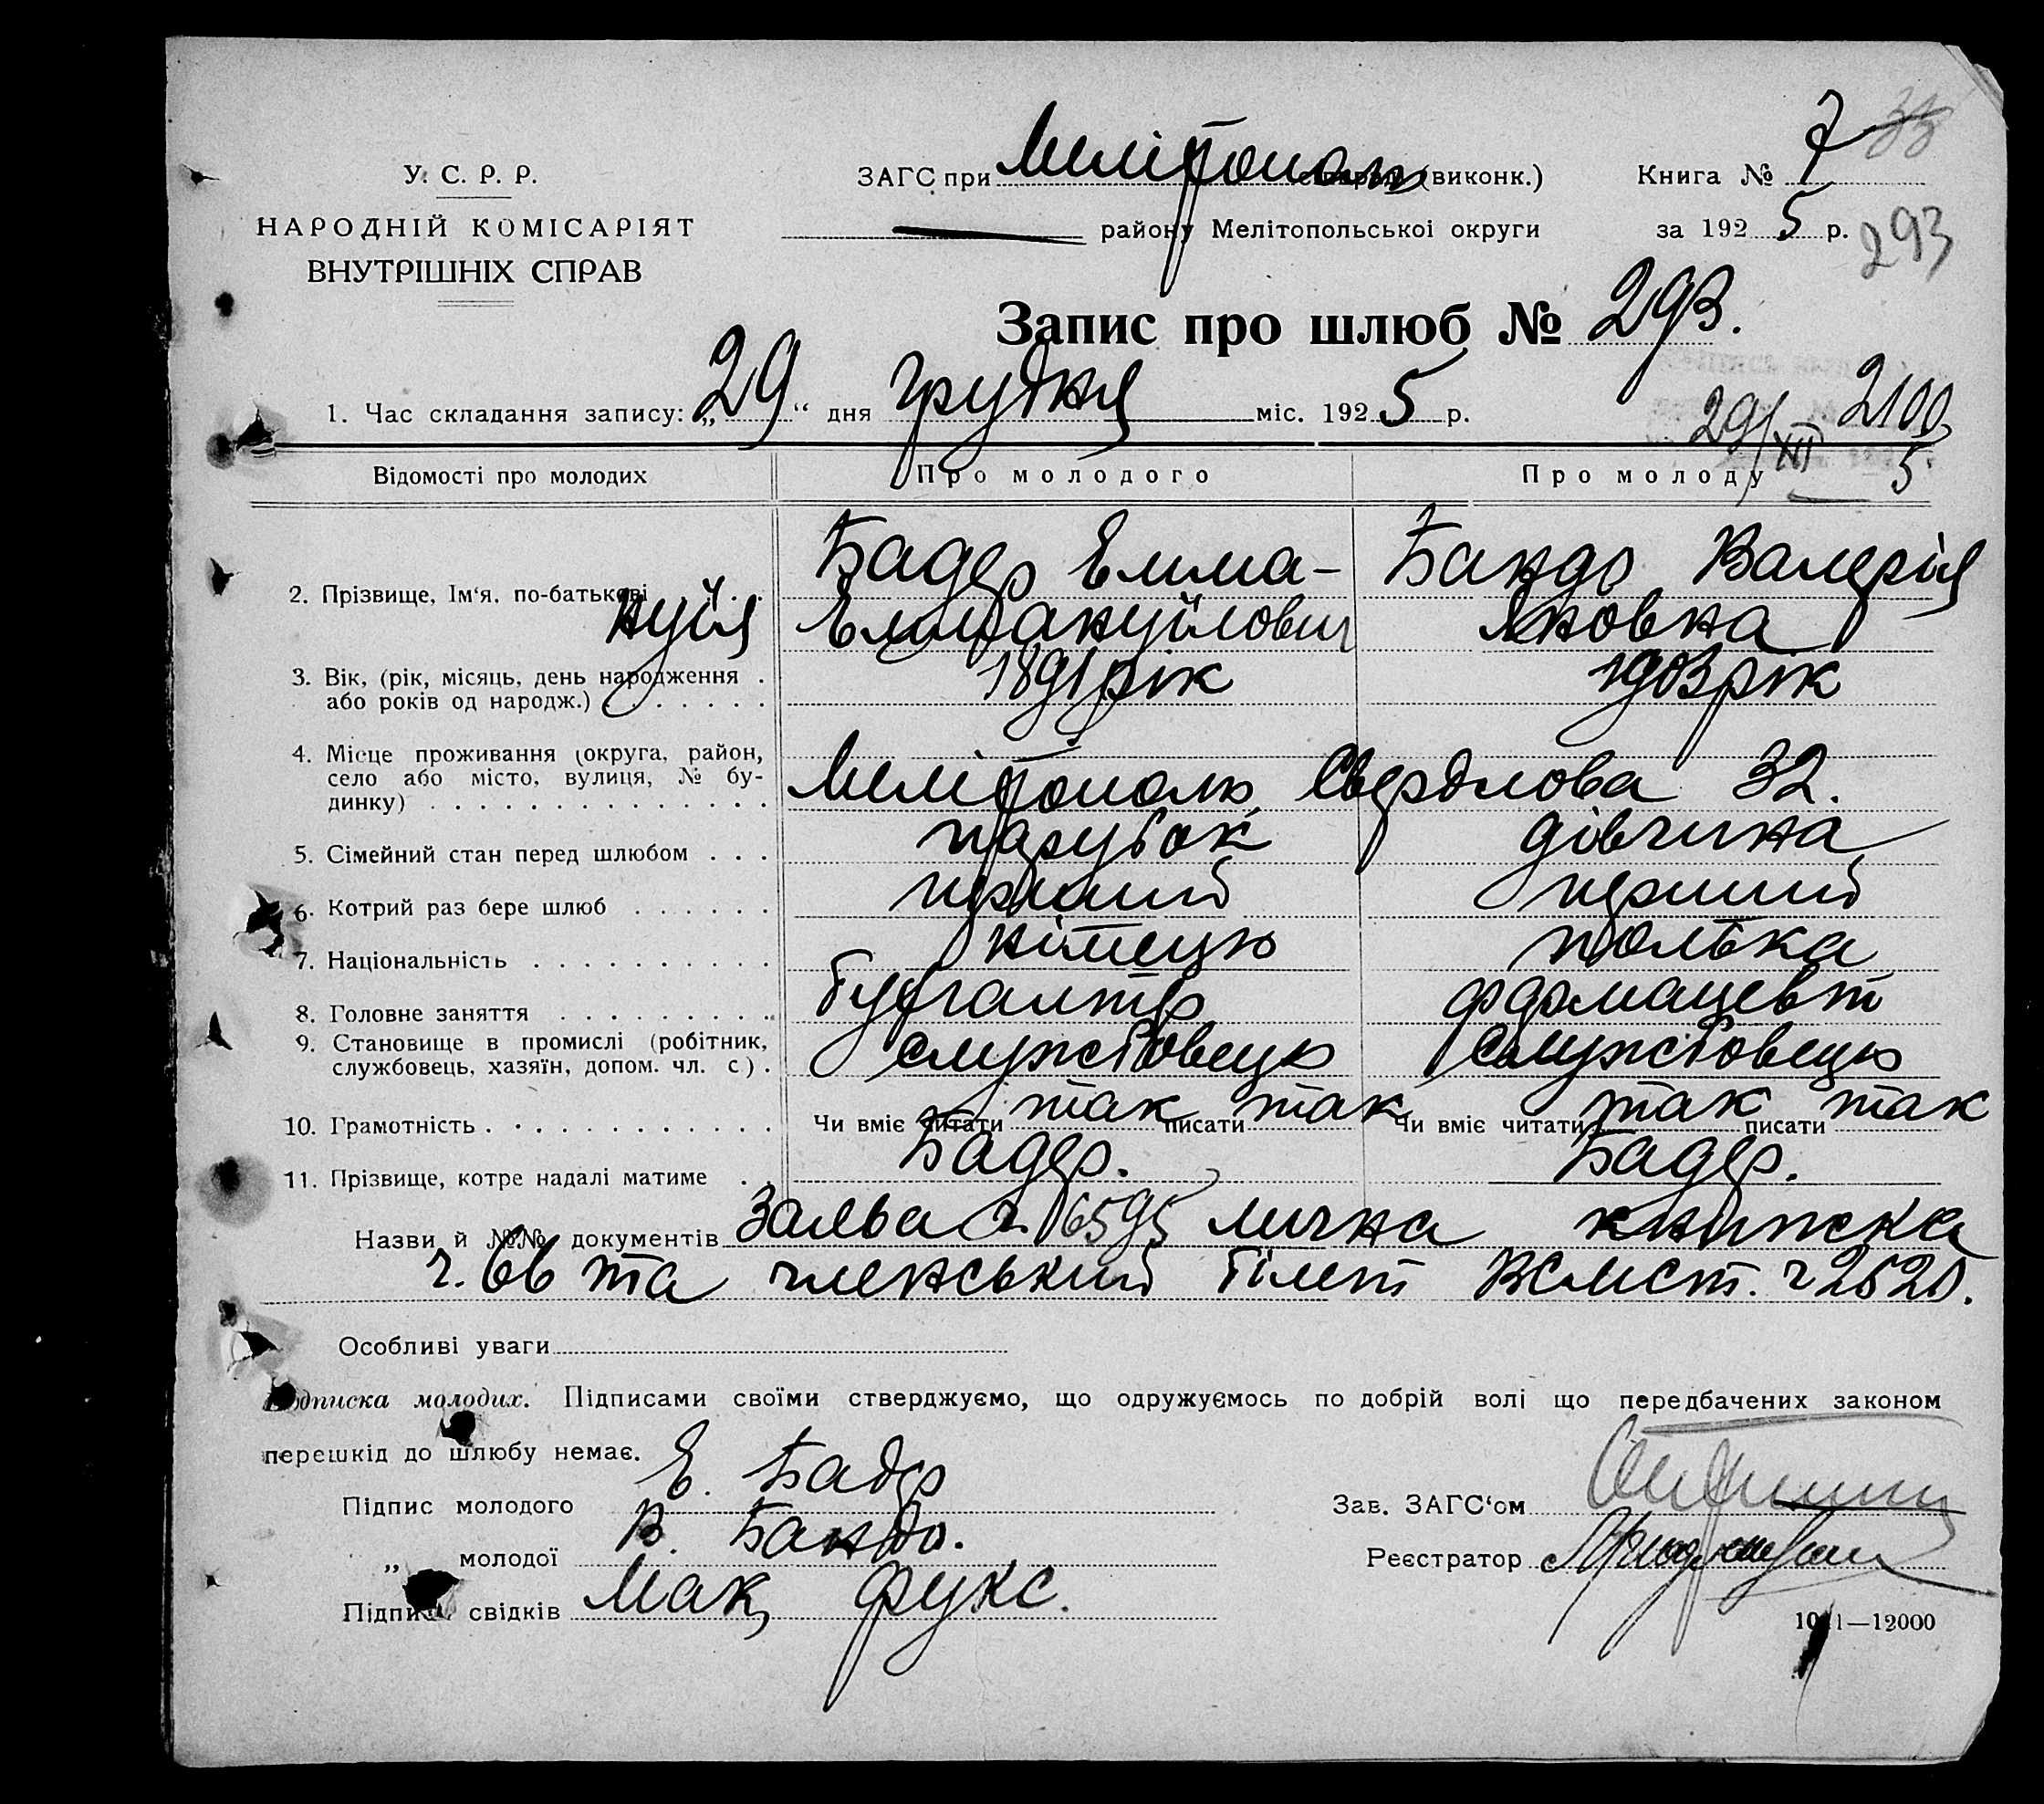 У. С. Р. Р.
НАРОДНІЙ КОМІСАРІЯТ
ВНУТРІШНІХ СПРАВ
ЗАГС при Меліто (виконк.)
районy Мелітопольської округи
Книга № 7
33
за 1925 р.
293
Запис про шлюб № 293.
1. Час складання запису: „29“ дня грудня міс. 1925 р.
29/XII 5
2100
Відомості про молодих Про молодого Про молоду
2. Прізвище, Ім'я, по-батькові Бадер Емма- Бандо Валерія
нуїл Еммануїлович Яковна
3. Вік, (рік, місяць, день народження 1891 рік 1903 рік
або років од народж.)
4. Місце проживання (округа, район,
село або місто, вулиця, № бу-
динку) Мелітополь, Свердлова 32.
5. Сімейний стан перед шлюбом парубок дівчина
6. Котрий раз бере шлюб перший перший
7. Національність німець полька
8. Головне заняття бухгалтер фармацевт
9. Становище в промислі (робітник,
службовець, хазяїн, допом. чл. с). службовець службовець
10. Грамотність Чи вміє читати так писати так Чи вміє читати так писати так
11. Прізвище, котре надалі матиме Бадер. Бадер.
Назви й №№ документів Заява ч. 6595 лична книжка
ч. 66 та членський білет ч 2520.
Особливі уваги
Подписка молодих. Підписами своїми стверджуємо, що одружуємось по добрій волі що передбачених законом
перешкід до шлюбу немає.
Підпис молодого Е. Бадер
„ молодої В. Бандо.
Підписи свідків Мак, Фукс.
Зав. ЗАГС'ом
Реєстратор
1011—12000